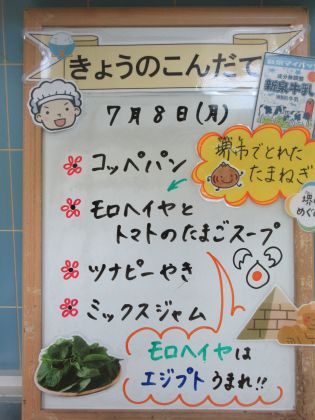 きょうのこんだて
7月8日(月)
コッペパン
モロヘイヤと
トマトのたまごスープ
ツナピーやき
ミックスジャム
堺市でとれた
たまねぎ
新泉牛乳
モロヘイヤは
エジプトうまれ!!